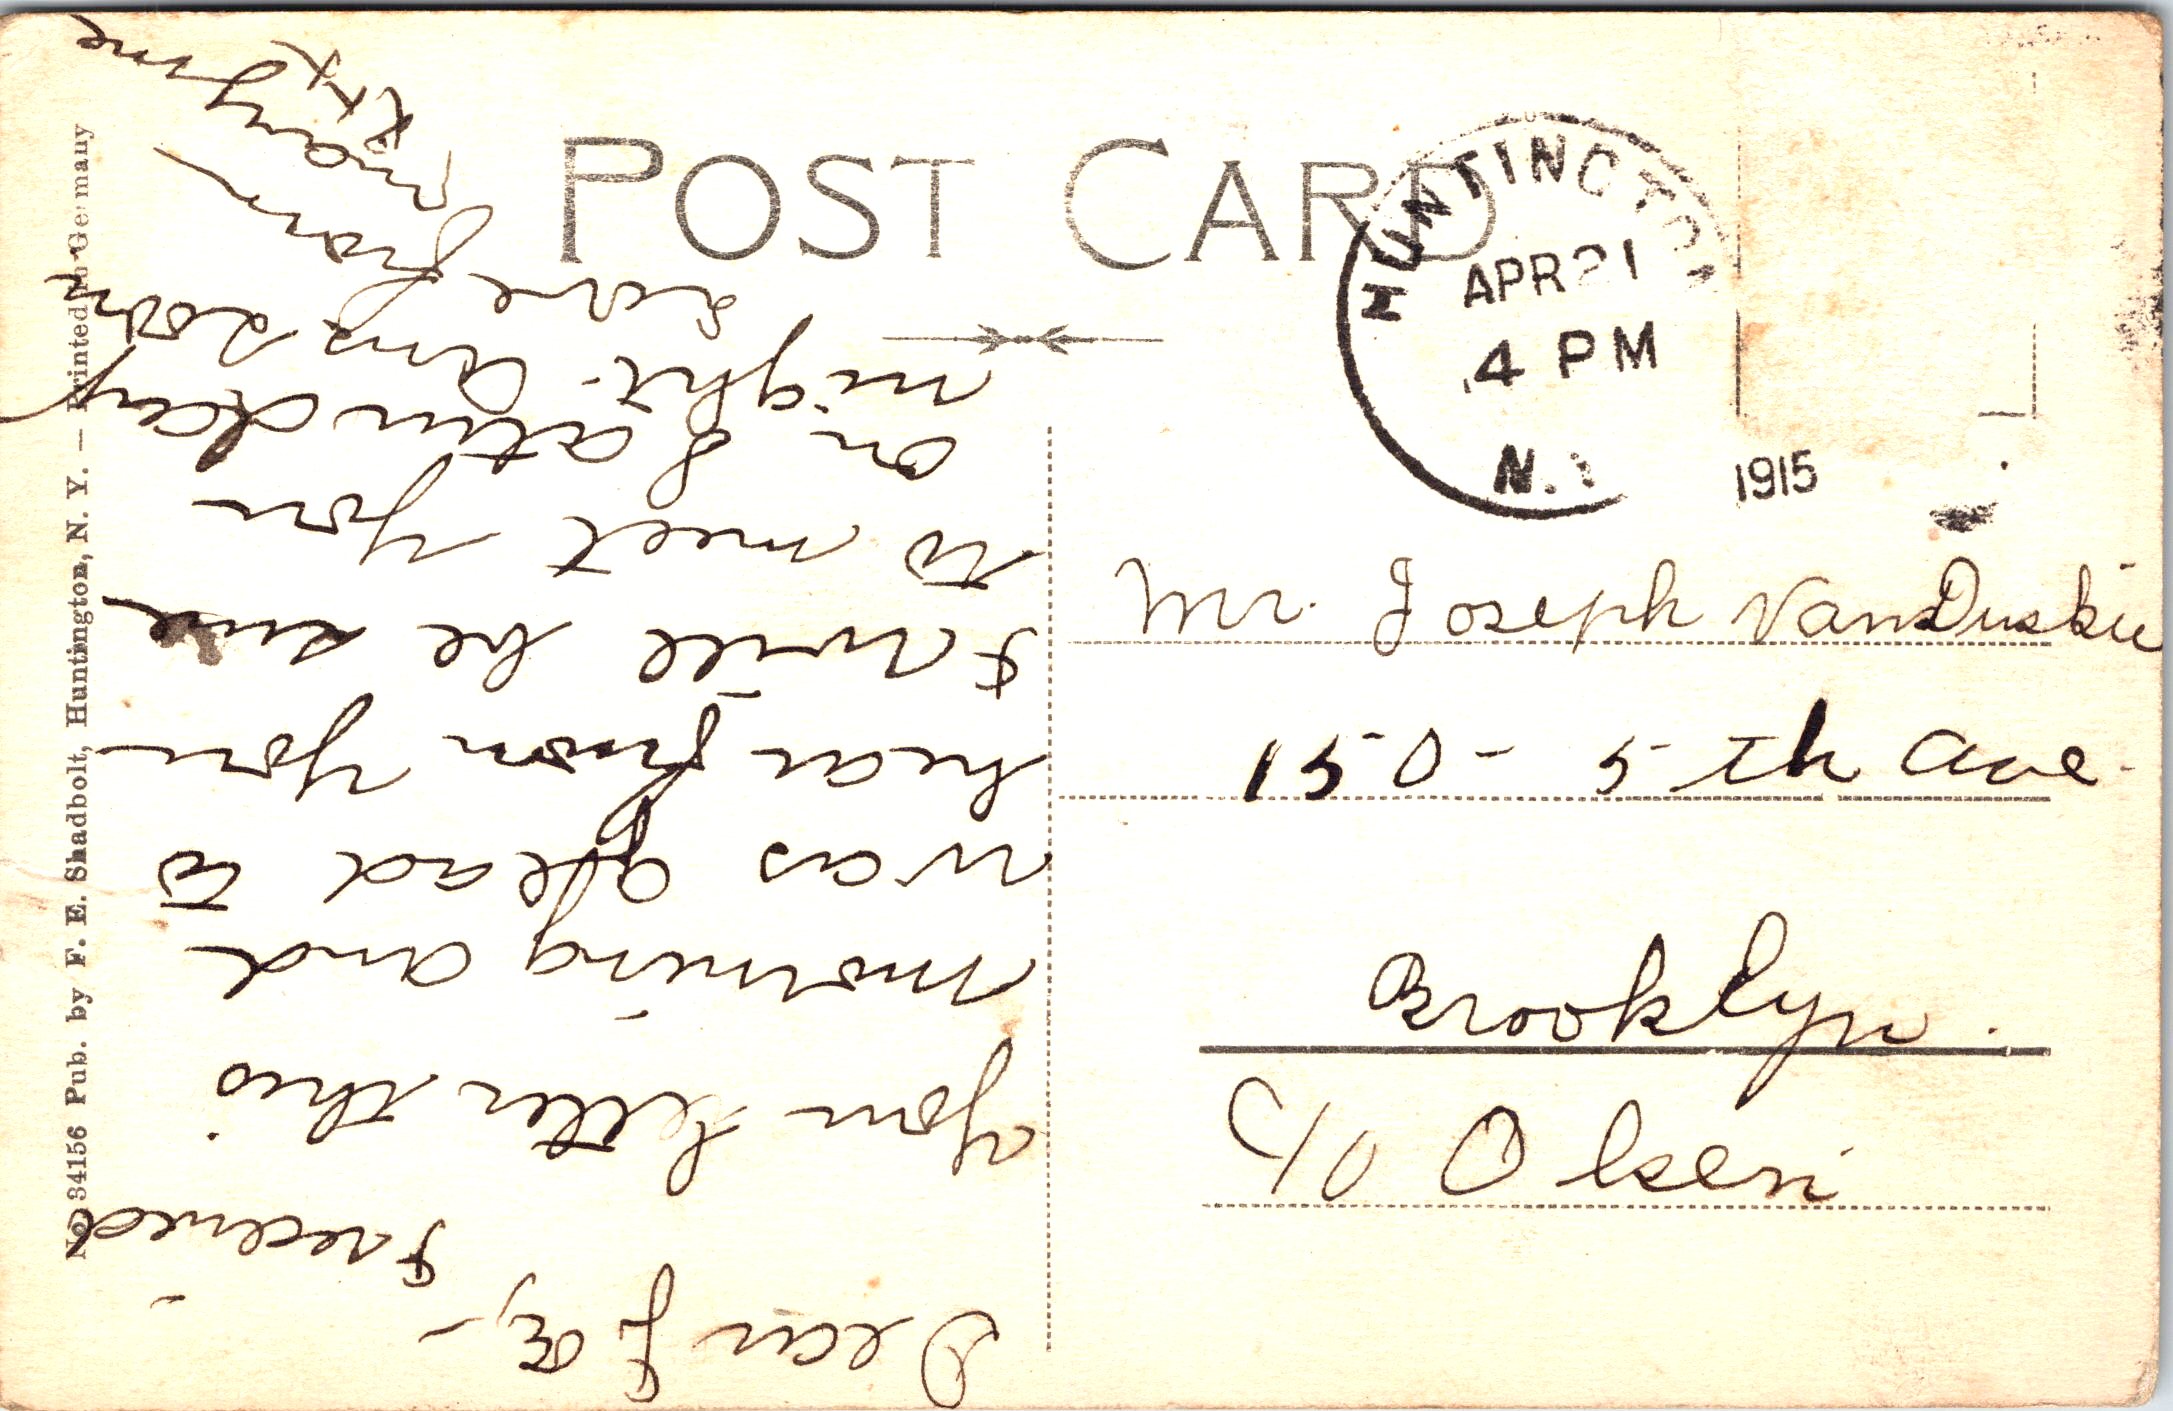 POST CARD
HUNTINGTON
APR 21
4 PM
N.Y
1915
Mr. Joseph VanDuskie
150 - 5th ave.
Brooklyn.
C/O Olsen
Dear Joe,-
I received
your letter this
morning and
was glad to
hear from you
I will be sure
to meet you
on Saturday
night. Ans soon
Love from
No 34156 Pub. by F. E. Shadbolt, Huntington, N. Y. — Printed in Germany